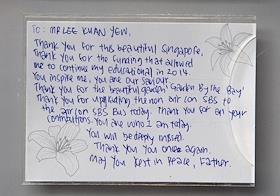 To: MR LEE KUAN YEW,
Thank you for this beautiful Singapore.
Thank you for the funding that allowed
me to continue my educational in 2014.
You inspire me, you are our saviour.
Thank you for the beautiful garden 'Garden By The Bay'
Thank you for upgrading the non air con SBS to
the air con SBS Bus today. Thank you for all your
contributions you are who I am today.
You will be deeply missed.
Thank you you once again
May you Rest in Peace, Father.